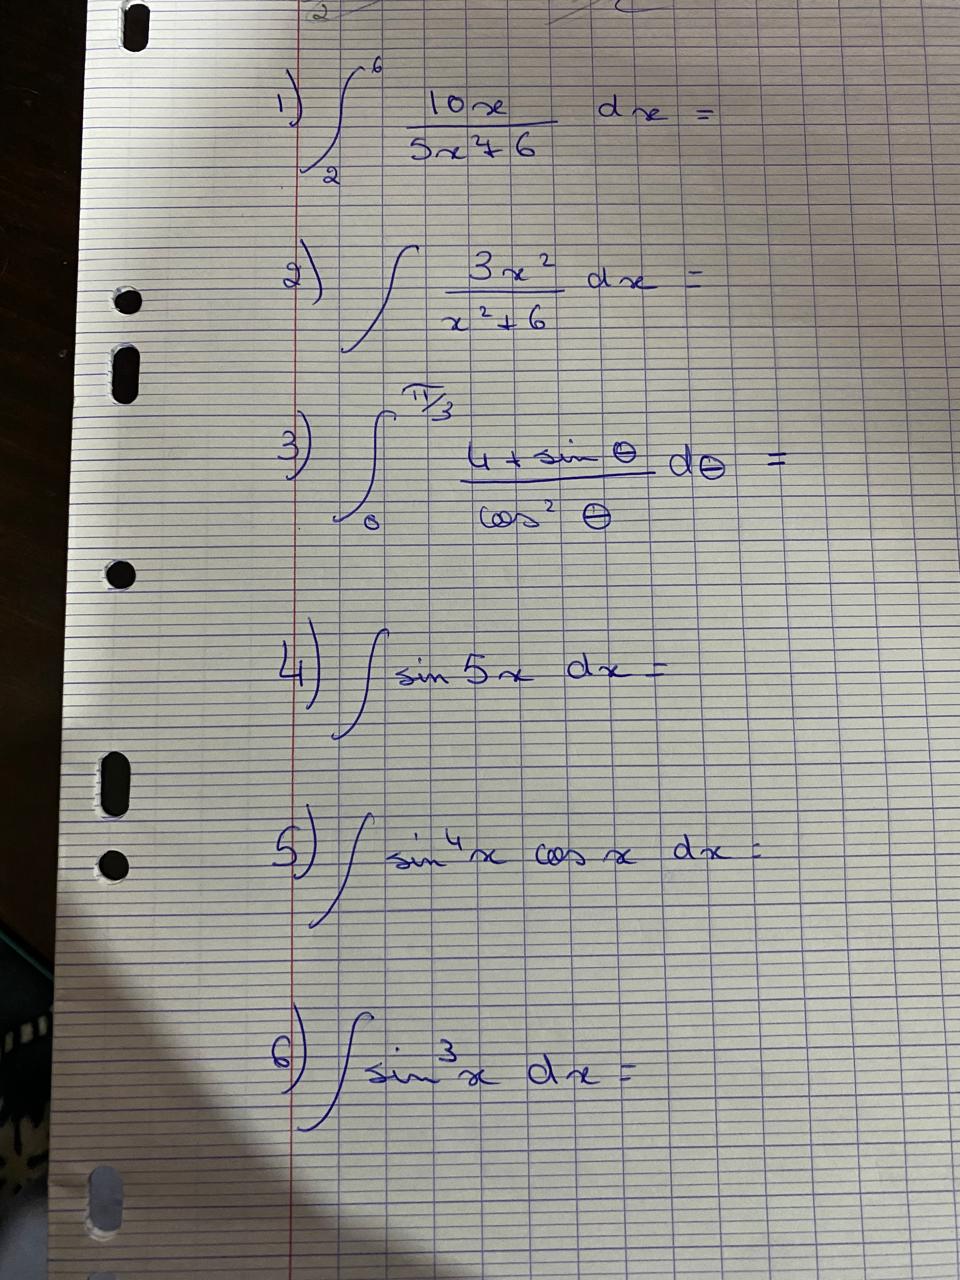 2
1) ∫₂⁶ 10x / (5x² + 6) dx =
2) ∫ 3x² / (x² + 6) dx =
3) ∫₀^(π/3) (4 + sin θ) / cos² θ dθ =
4) ∫ sin 5x dx =
5) ∫ sin⁴x cos x dx =
6) ∫ sin³x dx =